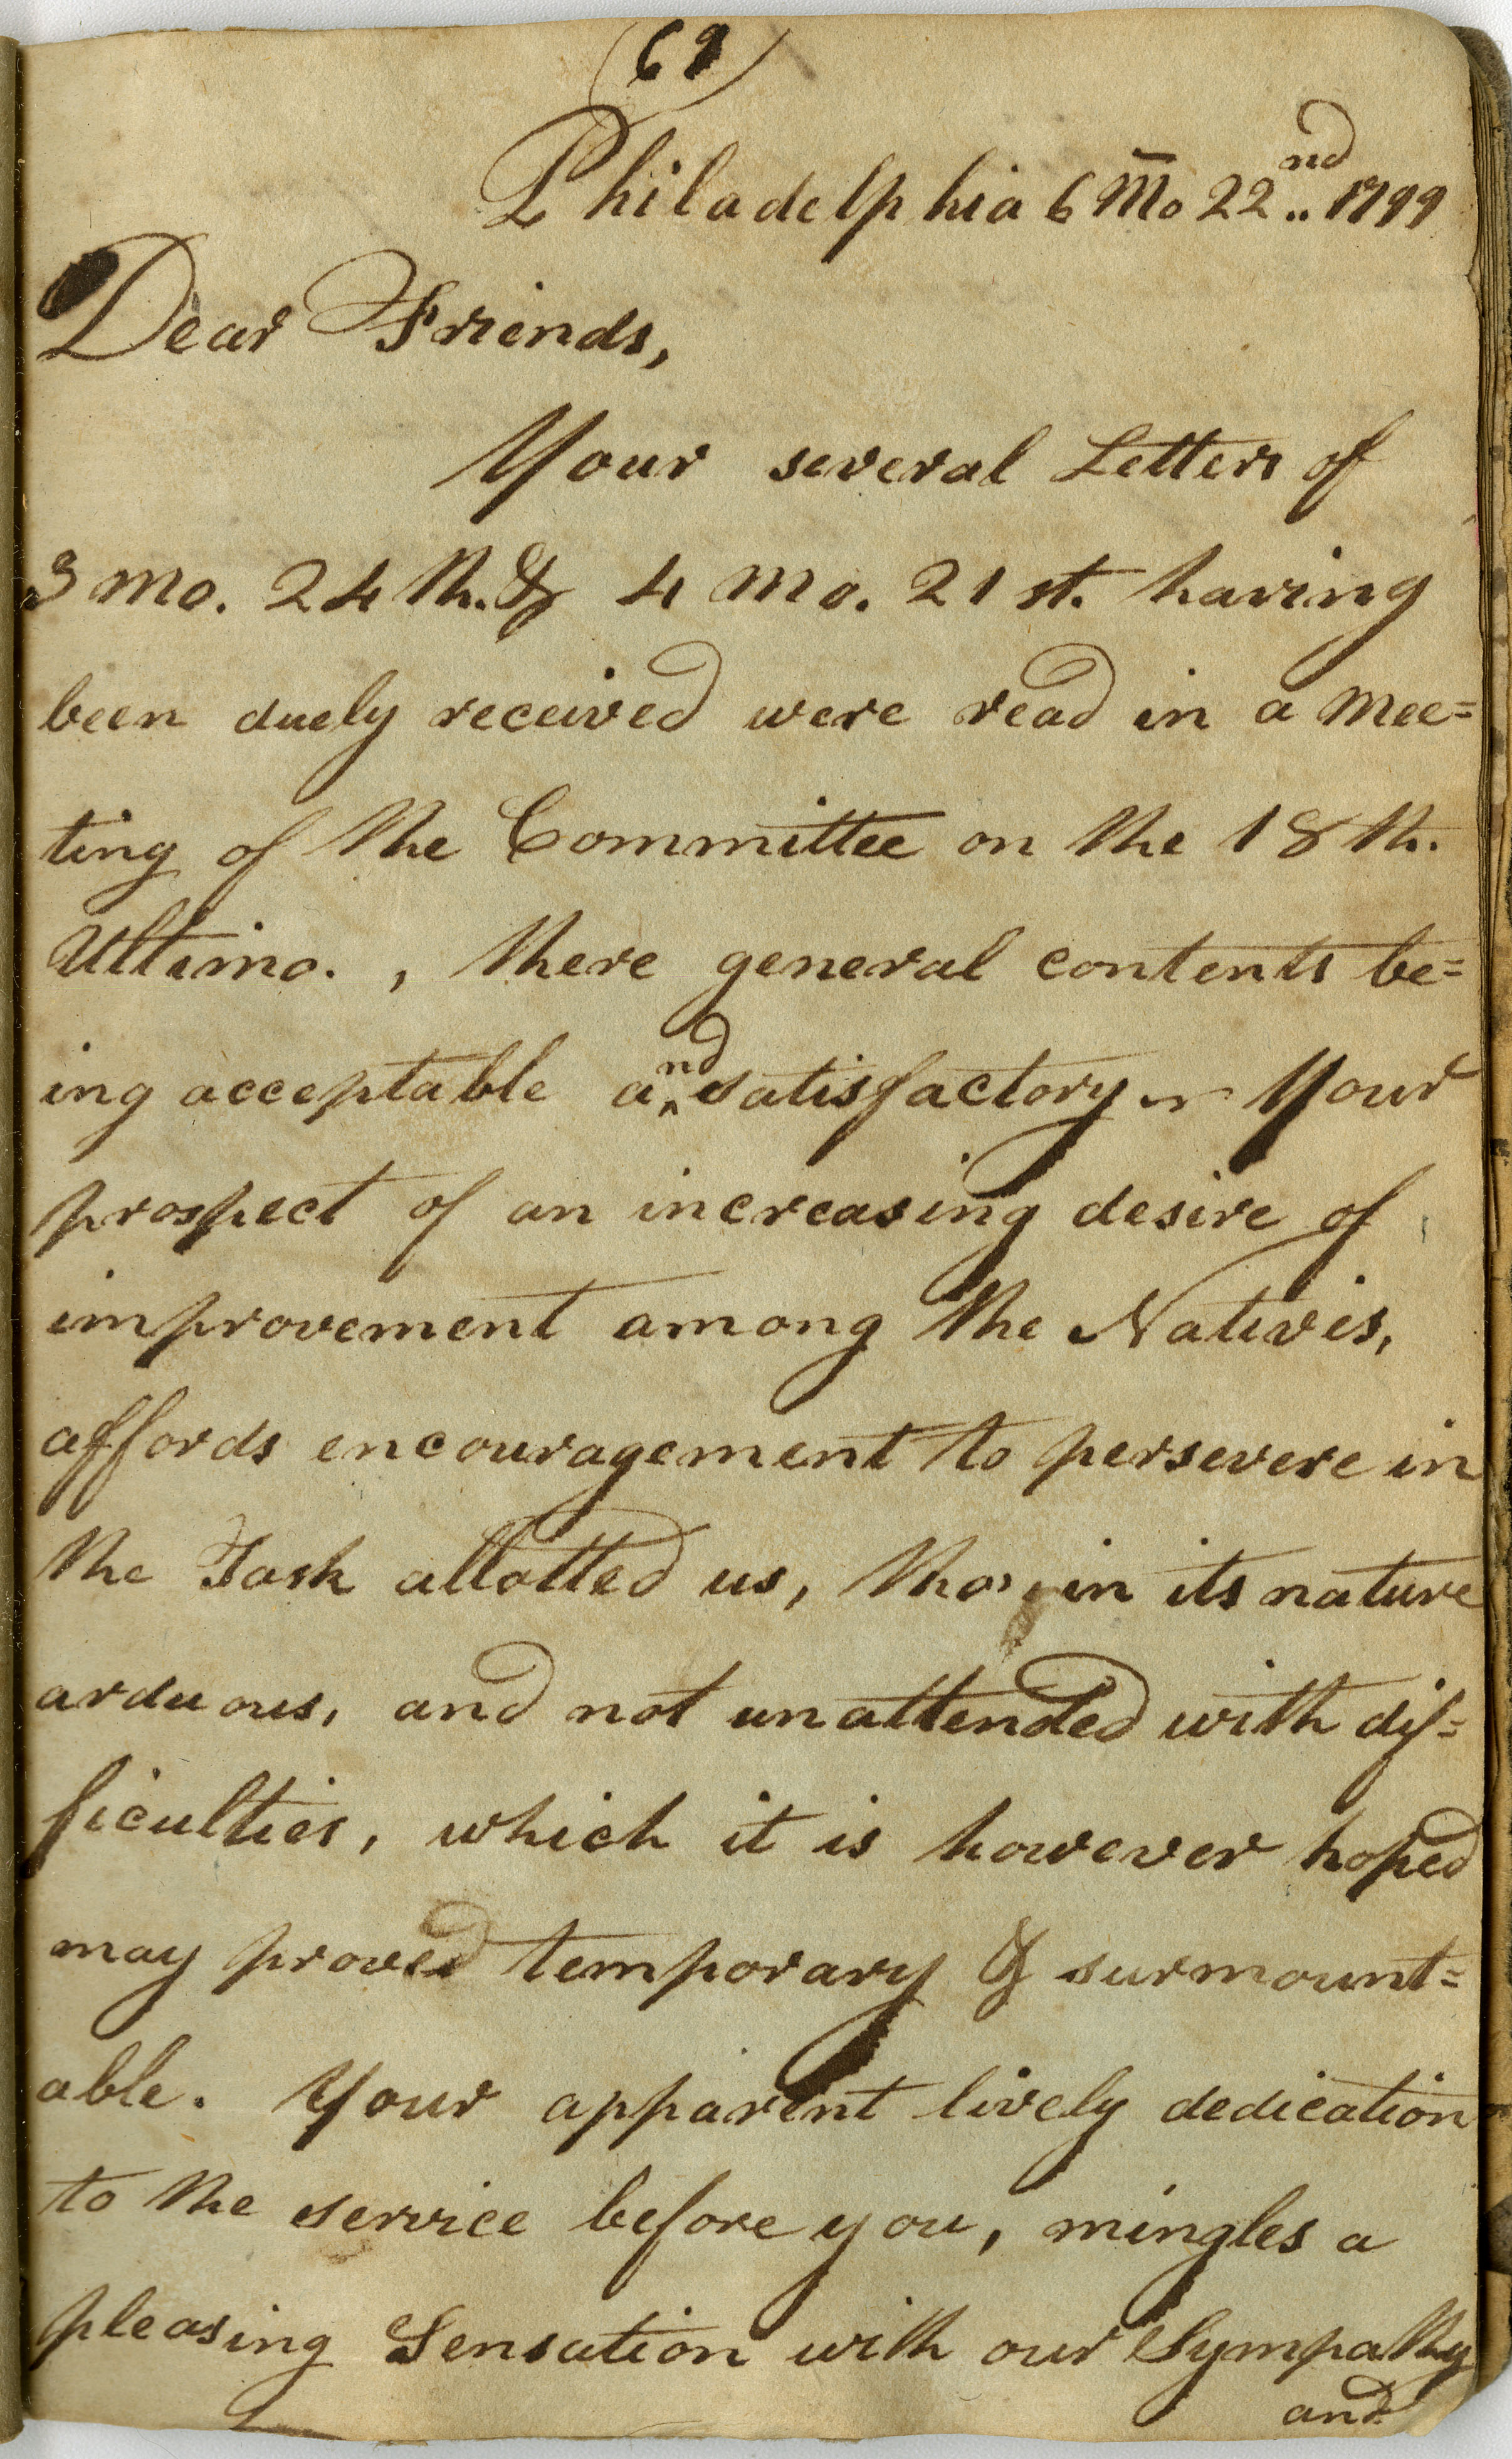 (69)
Philadelphia 6 Mo 22nd.. 1799
Dear Friends,
Your several Letters of
3 mo. 24th. & 4 mo. 21st. having
been duely received were read in a Mee=
ting of the Committee on the 18th.
Ultimo. , there general contents be=
ing acceptable and satisfactory. Your
prospect of an increasing desire of
improvement among the Natives,
affords encouragement to persevere in
the Task allotted us, tho' in its nature
arduous, and not unattended with dif=
ficulties, which it is however hoped
may proved temporary & surmount=
able. Your apparent lively dedication
to the service before you, mingles a
pleasing Sensation with our Sympathy
and